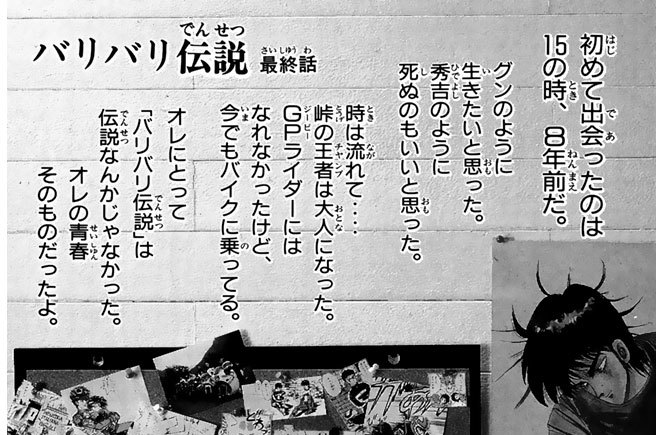 バリバリ伝説 最終話
初めて出会ったのは
15の時、8年前だ。
グンのように
生きたいと思った。
秀吉のように
死ぬのもいいと思った。
時は流れて‥‥
峠の王者は大人になった。
GPライダーには
なれなかったけど、
今でもバイクに乗ってる。
オレにとって
「バリバリ伝説」は
伝説なんかじゃなかった。
オレの青春
そのものだったよ。